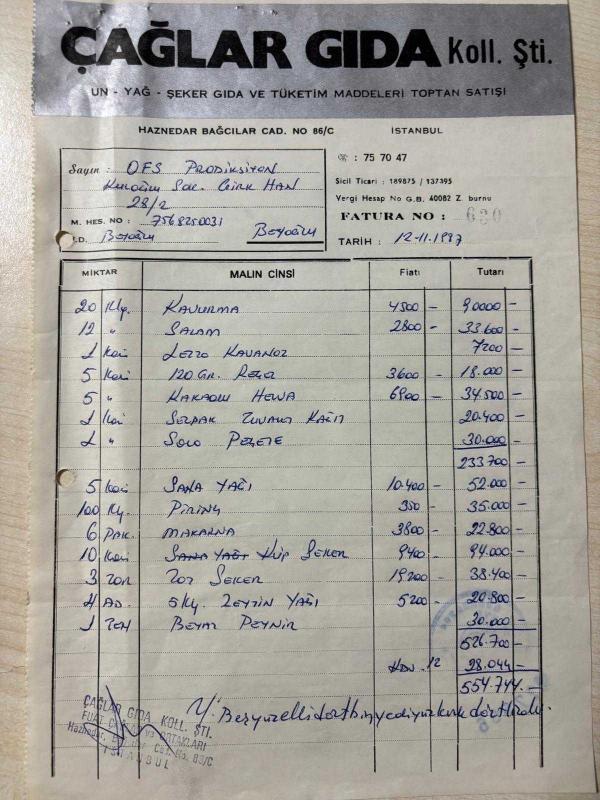 ÇAĞLAR GIDA Koll. Şti.
UN - YAĞ - ŞEKER GIDA VE TÜKETİM MADDELERİ TOPTAN SATIŞI
HAZNEDAR BAĞCILAR CAD. NO 86/C İSTANBUL
Sayın : OFS PRODİKSİYON
Han
28/2
M. HES. NO : 7568250031
.D. Beyoğlu Beyoğlu
☎ : 75 70 47
Sicil Ticari : 189875 / 137395
Vergi Hesap No G.B. 40082 Z. burnu
FATURA NO : 620
TARİH : 12-11-1987
MİKTAR MALIN CİNSİ Fiatı Tutarı
20 Kg. KAVURMA 4500 - 90000 -
12 " SALAM 2800 - 33600 -
1 Koli KAVANOZ 7200 -
5 Koli 120 GR. REÇEL 3600 - 18.000 -
5 " KAKAOLU HELVA 6900 - 34.500 -
1 Koli SELPAK TUVALET KAĞIT 20.400 -
1 " SOLO PEÇETE 30.000 -
233700 -
5 Koli SANA YAĞI 10.400 - 52.000 -
100 Kg. PİRİNÇ 350 - 35.000 -
6 PAK. MAKARNA 3800 - 22.800 -
10 Koli SANA YAĞI KÜP ŞEKER 9400 - 94.000 -
3 TOR TOZ ŞEKER 19200 - 38.400 -
4 AD. 5 Kg. ZEYTİN YAĞI 5200 - 20.800 -
1 TEN BEYAZ PEYNİR 30.000 -
526.700 -
KDV. 12 28.044 -
554.744 -
Y/ Beşyüzellidörtbinyediyüzkırkdörtliradır.
ÇAĞLAR GIDA KOLL. ŞTİ.
FUAT ÇAĞLAR ve ORTAKLARI
Haznedar, Bağcılar Cad. No. 86/C
İSTANBUL